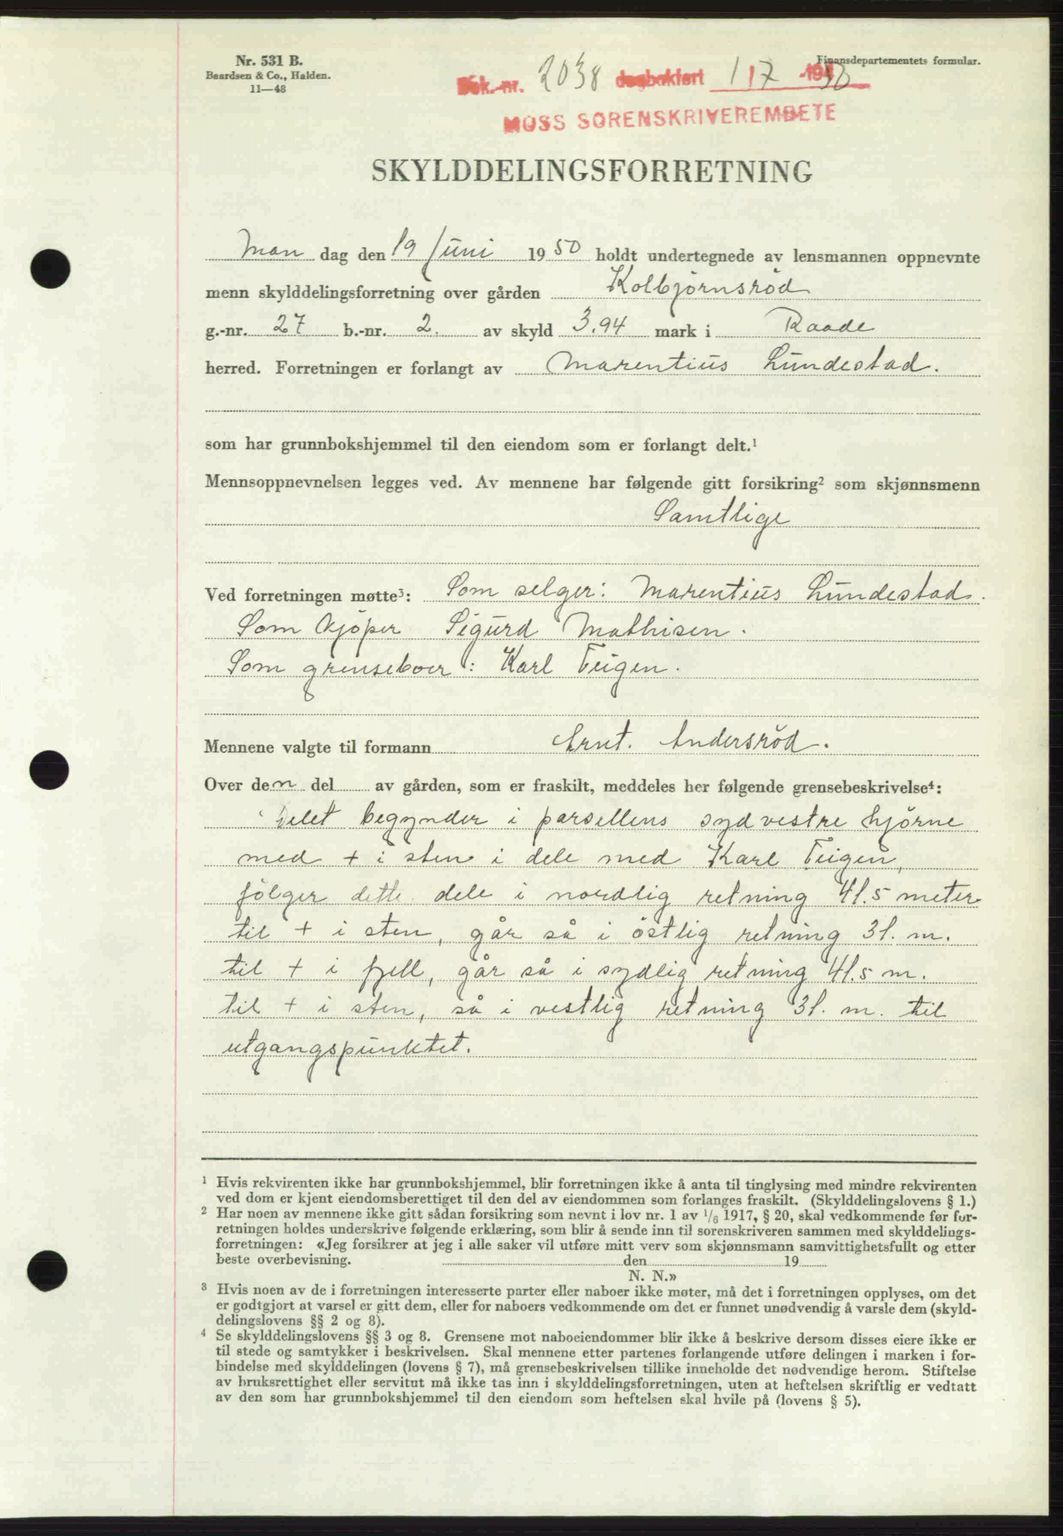 Nr. 531 B.
Baardsen & Co., Halden.
11—48
Finansdepartementets formular.
Dok.-nr. 2038 dagbokført 1/7 -1950
MOSS SORENSKRIVEREMBETE
SKYLDDELINGSFORRETNING
Man dag den 19 Juni 1950 holdt undertegnede av lensmannen oppnevnte
menn skylddelingsforretning over gården Kolbjørnsröd
g.-nr. 27 b.-nr. 2. av skyld 3.94 mark i Raade
herred. Forretningen er forlangt av Marentius Lundestad.
som har grunnbokshjemmel til den eiendom som er forlangt delt.¹
Mennsoppnevnelsen legges ved. Av mennene har følgende gitt forsikring² som skjønnsmenn
Samtlige
Ved forretningen møtte³: Som selger: Marentius Lundestad.
Som kjöper Sigurd Mathisen.
Som grenseboer: Karl Teigen.
Mennene valgte til formann Arnt. Andersröd.
Over den del av gården, som er fraskilt, meddeles her følgende grensebeskrivelse⁴:
Delet begynder i parsellens sydvestre hjörne
med + i sten i dele med Karl Teigen,
fölger dette dele i nordlig retning 41.5 meter
til + i sten, går så i östlig retning 31. m.
til + i fjell, går så i sydlig retning 41.5 m.
til + i sten, så i vestlig retning 31. m. til
utgangspunktet.
¹ Hvis rekvirenten ikke har grunnbokshjemmel, blir forretningen ikke å anta til tinglysing med mindre rekvirenten
ved dom er kjent eiendomsberettiget til den del av eiendommen som forlanges fraskilt. (Skylddelingslovens § 1.)
² Har noen av mennene ikke gitt sådan forsikring som nevnt i lov nr. 1 av 1/6 1917, § 20, skal vedkommende før for-
retningen holdes underskrive følgende erklæring, som blir å sende inn til sorenskriveren sammen med skylddelings-
forretningen: «Jeg forsikrer at jeg i alle saker vil utføre mitt verv som skjønnsmann samvittighetsfullt og etter
beste overbevisning. den 19
N. N.»
³ Hvis noen av de i forretningen interesserte parter eller naboer ikke møter, må det i forretningen opplyses, om det
er godtgjort at varsel er gitt dem, eller for naboers vedkommende om det er funnet unødvendig å varsle dem (skyld-
delingslovens §§ 2 og 8).
⁴ Se skylddelingslovens §§ 3 og 8. Grensene mot naboeiendommer blir ikke å beskrive dersom disses eiere ikke er
til stede og samtykker i beskrivelsen. Skal mennene etter partenes forlangende utføre delingen i marken i for-
bindelse med skylddelingen (lovens § 7), må grensebeskrivelsen tillike inneholde det nødvendige herom. Stiftelse
av bruksrettighet eller servitut må ikke tas inn i skylddelingsforretningen, uten at heftelsen skriftlig er vedtatt
av den som har grunnbokshjemmel til den eiendom som heftelsen skal hvile på (lovens § 5).